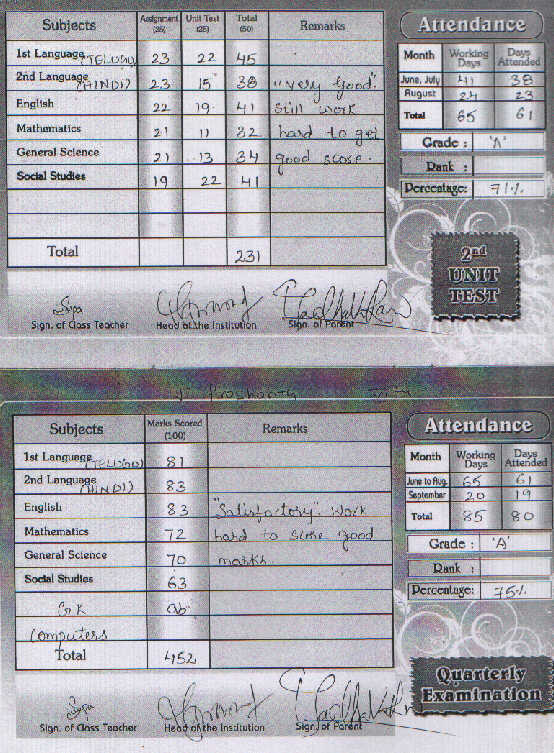 Subjects Assignment (25) Unit Test (25) Total (50) Remarks
1st Language (TELUGU) 23 22 45
2nd Language (HINDI) 23 15 38 "very good".
English 22 19 41 still work
Mathematics 21 11 32 hard to get
General Science 21 13 34 good score.
Social Studies 19 22 41
Total 231
Sign. of Class Teacher Head of the Institution Sign. of Parent
Attendance
Month Working Days Days Attended
June, July 41 38
August 24 23
Total 65 61
Grade : 'A'
Rank :
Percentage: 71%
2nd
UNIT
TEST
Subjects Marks Scored (100) Remarks
1st Language (TELUGU) 81
2nd Language (HINDI) 83
English 83 "Satisfactory". Work
Mathematics 72 hard to score good
General Science 70 marks.
Social Studies 63
G.K ab
Computers
Total 452
Sign. of Class Teacher Head of the Institution Sign. of Parent
Attendance
Month Working Days Days Attended
June to Aug. 65 61
September 20 19
Total 85 80
Grade : 'A'
Rank :
Percentage: 75%
Quarterly
Examination